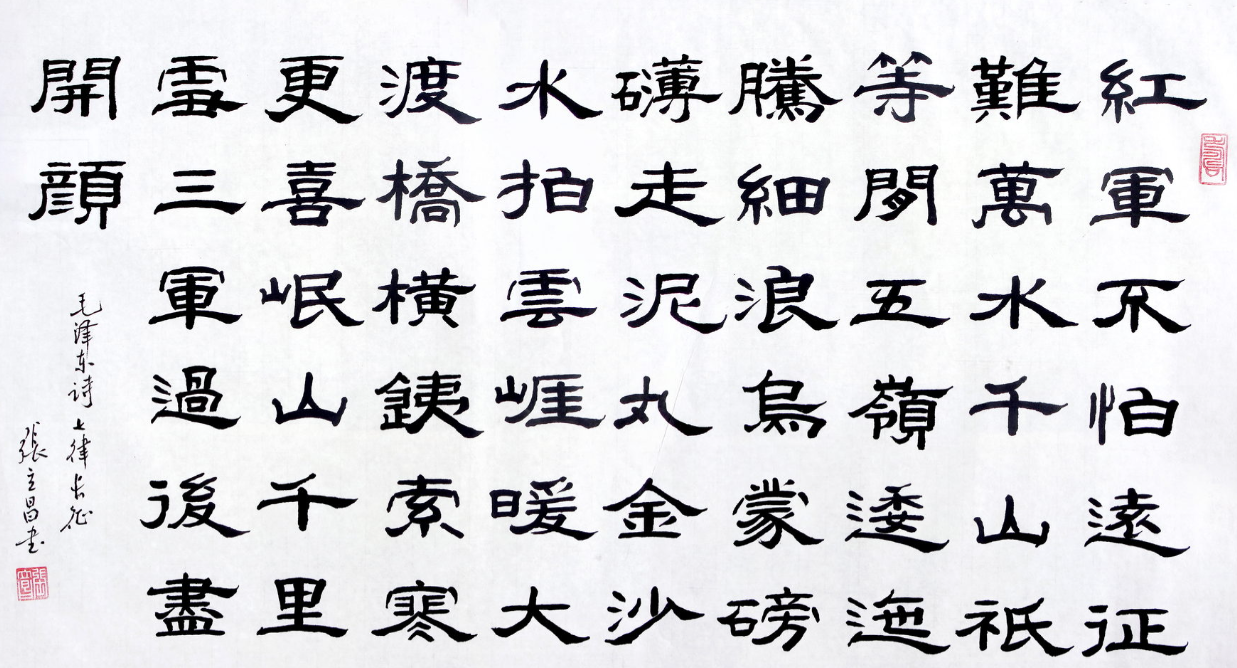 紅軍不怕遠征
難萬水千山祇
等閒五嶺逶迤
騰細浪烏蒙磅
礴走泥丸金沙
水拍雲崕暖大
渡橋横銕索寒
更喜岷山千里
雪三軍過後盡
開顔
毛泽东诗七律长征
張立昌书